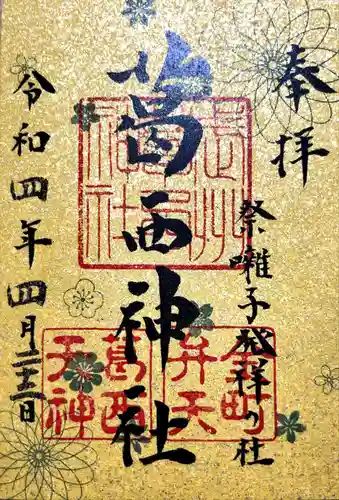 奉拝
祭囃子発祥の社
葛西神社
令和四年四月二十三日
金町
弁天
葛西
天神